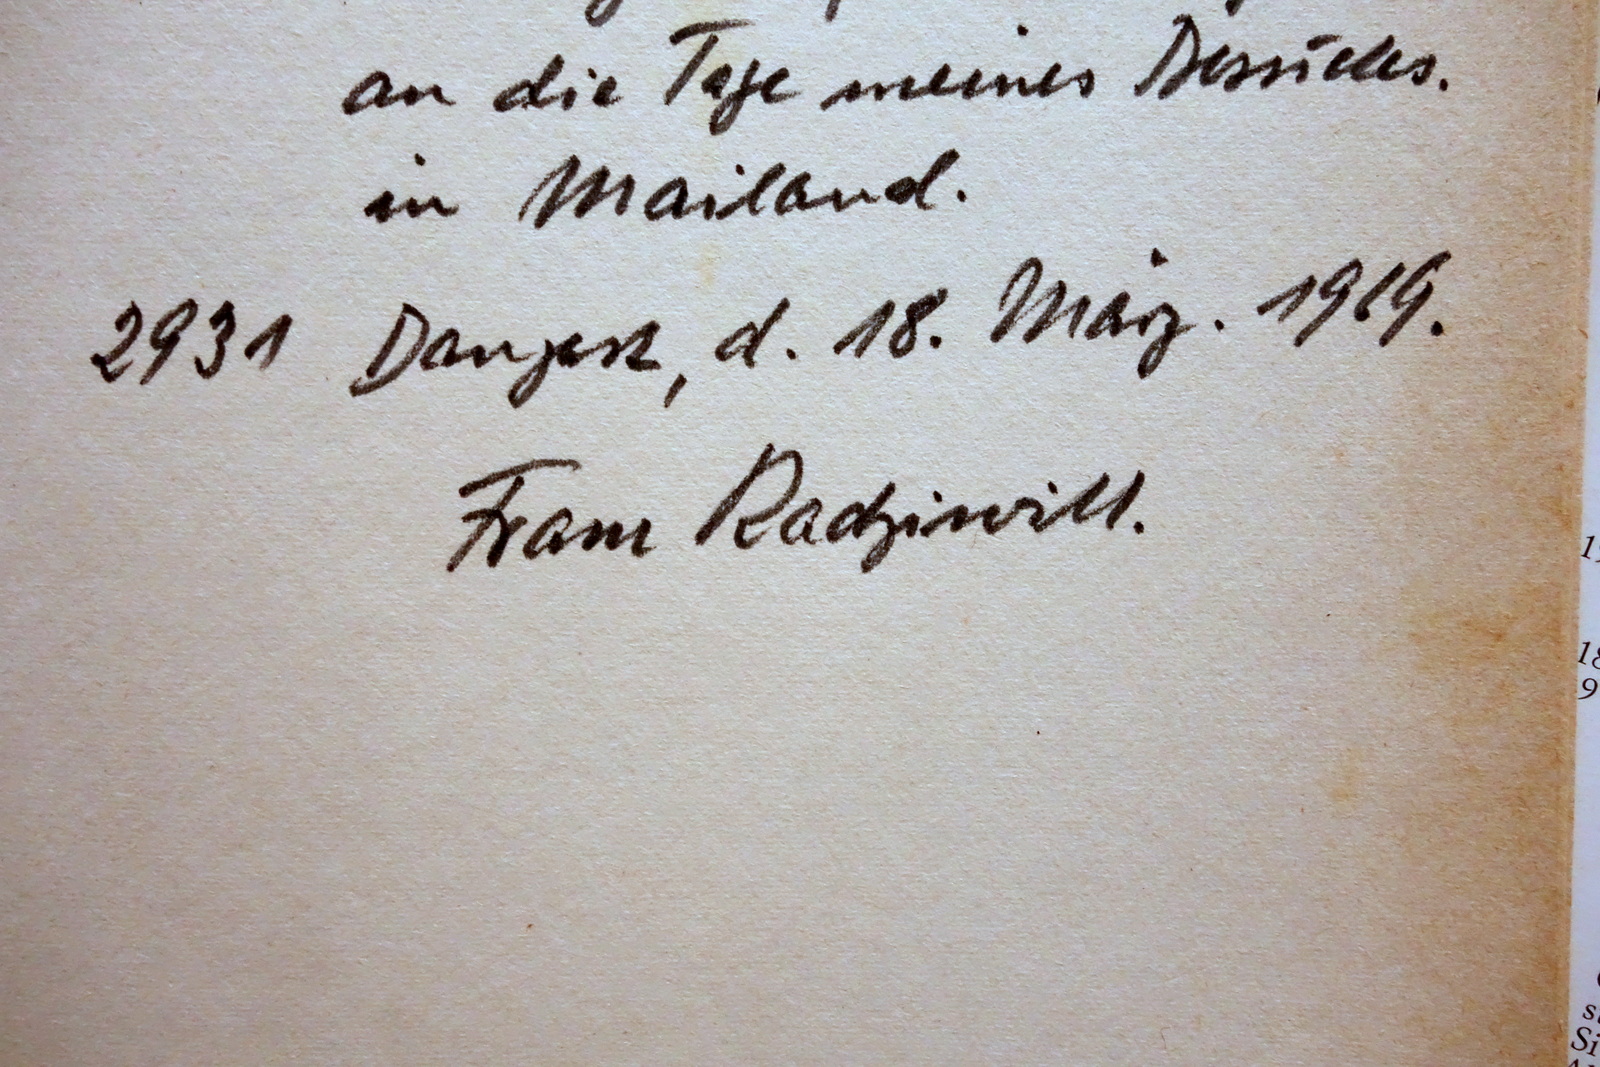 an die Tage meines Besuches.
in Mailand.
2931 Dangast, d. 18. März. 1969.
Franz Radziwill.
19
18
9
Si